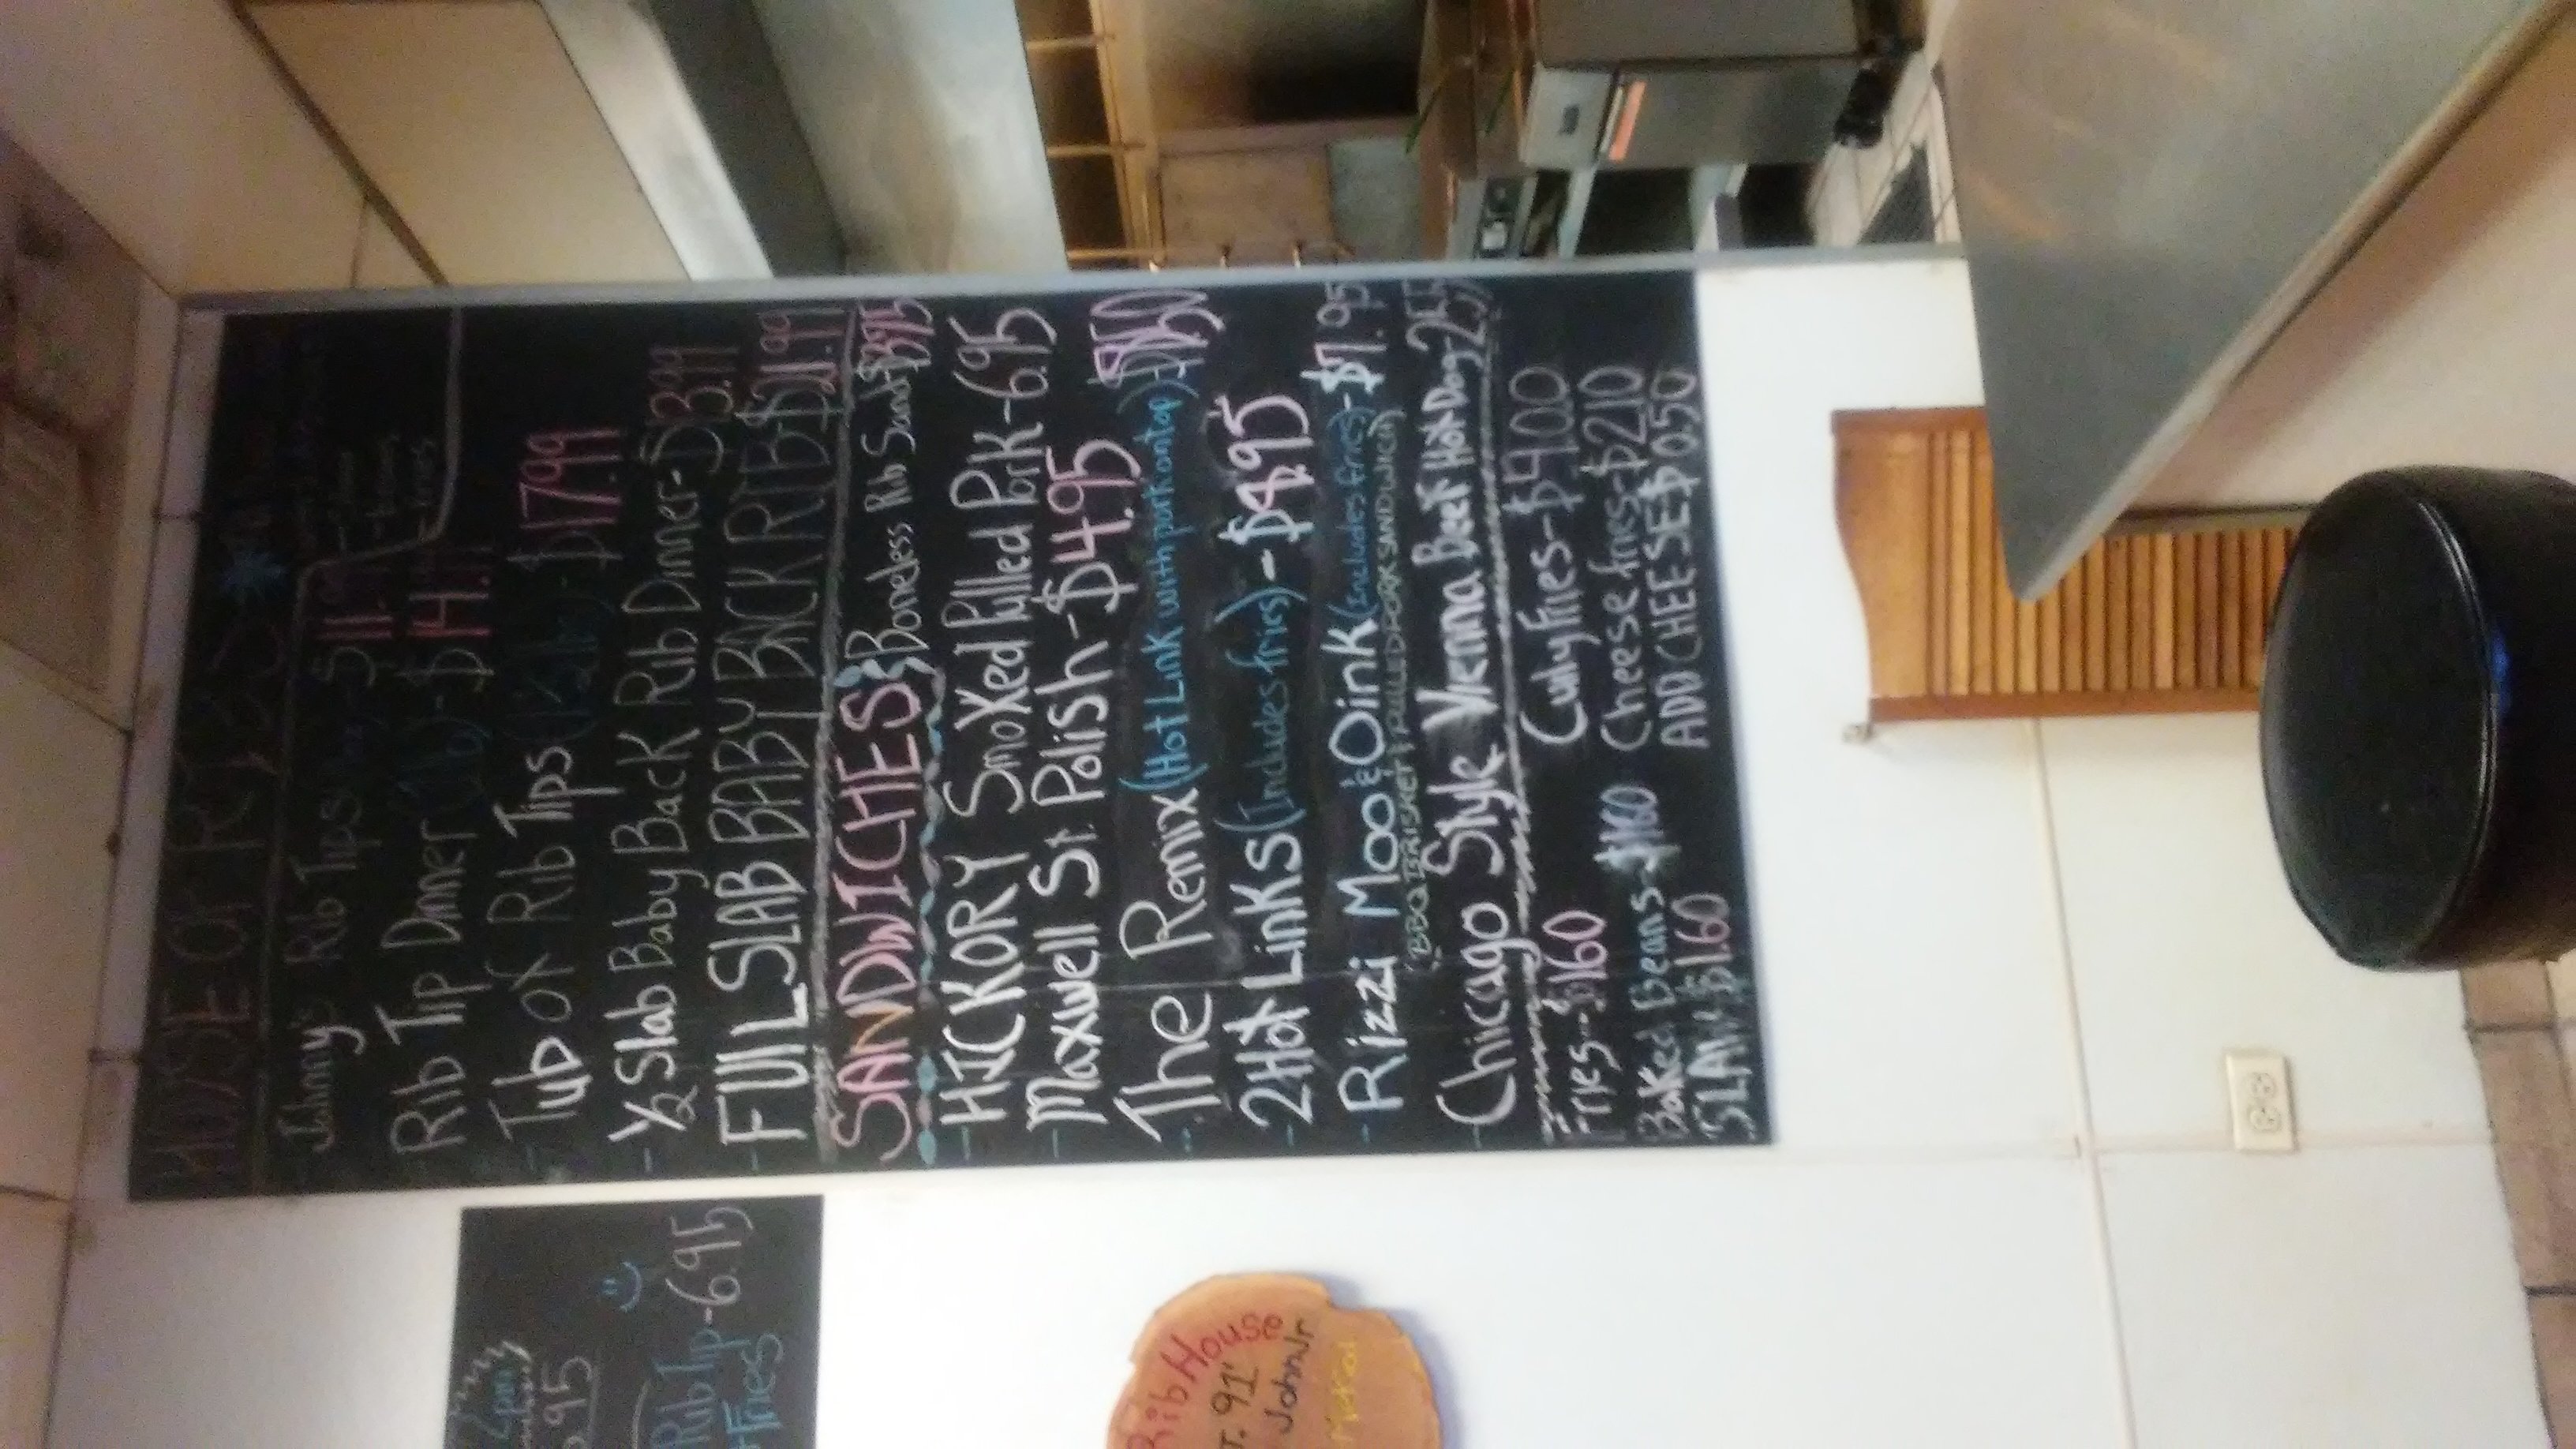 HOUSE OF RIBS
Johnny's Rib Tips - $11.99
Rib Tip Dinner - $14.99
Tub of Rib Tips - $17.99
- 1/2 Slab Baby Back Rib Dinner - $13.99
- FULL SLAB BABY BACK RIB $21.99
SANDWICHES Boneless Rib Sand
- HICKORY SmoKed Pulled Pork - 6.95
- Maxwell St. Polish - $4.95
- The Remix (Hot LinK with pork on top) -
- 2 Hot LinKs (Includes fries) -
- Rizzi Moo & Oink (Includes fries) - $7.95
(BBQ BRISKET & PULLED PORK SANDWICH)
- Chicago Style Vienna Beef Hot Dog
Fries - $1.60 Curly Fries -
Baked Beans - $1.60 Cheese fries - $2.10
SLAW - $1.60 ADD CHEESE $0.50
2pm
.95
Rib Tip - 6.95
+ Fries
Rib House
. 91'
John Jr